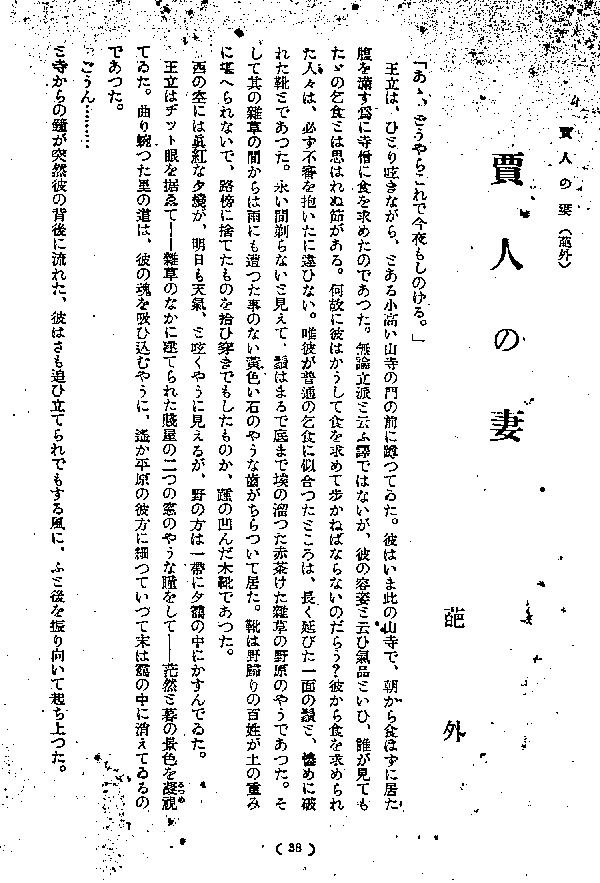 賈人の妻(葩外)
賈人の妻
葩外
「あゝ、どうやらこれで今夜もしのける。」
王立は、ひとり呟きながら、とある小高い山寺の門の前に蹲つてゐた。彼はいま此の山寺で、朝から食はずに居た
腹を滿す爲に寺僧に食を求めたのであつた。無論立派と云ふ譯ではないが、彼の容姿と云ひ氣品といひ、誰が見ても
たゞの乞食とは思はれぬ節がある。何故に彼はかうして食を求めて歩かねばならないのだらう?彼から食を求められ
た人々は、必ず不審を抱いたに違ひない。唯彼が普通の乞食に似合つたところは、長く延びた一面の鬚と、慘めに破
れた靴とであつた。永い間剃らないと見えて、鬚はまるで底まで埃の溜つた赤茶けた雜草の野原のやうであつた。そ
して其の雜草の間からは雨にも遭つた事のない黄色い石のやうな齒がちらついて居た。靴は野歸りの百姓が土の重み
に堪へられないで、路傍に捨てたものを拾ひ穿きでもしたものか、踵の凹んだ木靴であつた。
西の空には眞紅な夕燒が、明日も天氣、と呟くやうに見えるが、野の方は一帶に夕靄の中にかすんでゐた。
王立はヂット眼を据ゑて――雜草のなかに建てられた賤屋の二つの窓のやうな瞳をして――茫然と暮の景色を凝視
てゐた。曲り蜿つた里の道は、彼の魂を吸ひ込むやうに、遙か平原の彼方に細つていつて末は靄の中に消えてゐるの
であつた。
ごうん………
と寺からの鐘が突然彼の背後に流れた、彼はさも追ひ立てられでもする風に、ふと後を振り向いて起ち上つた。
(38)